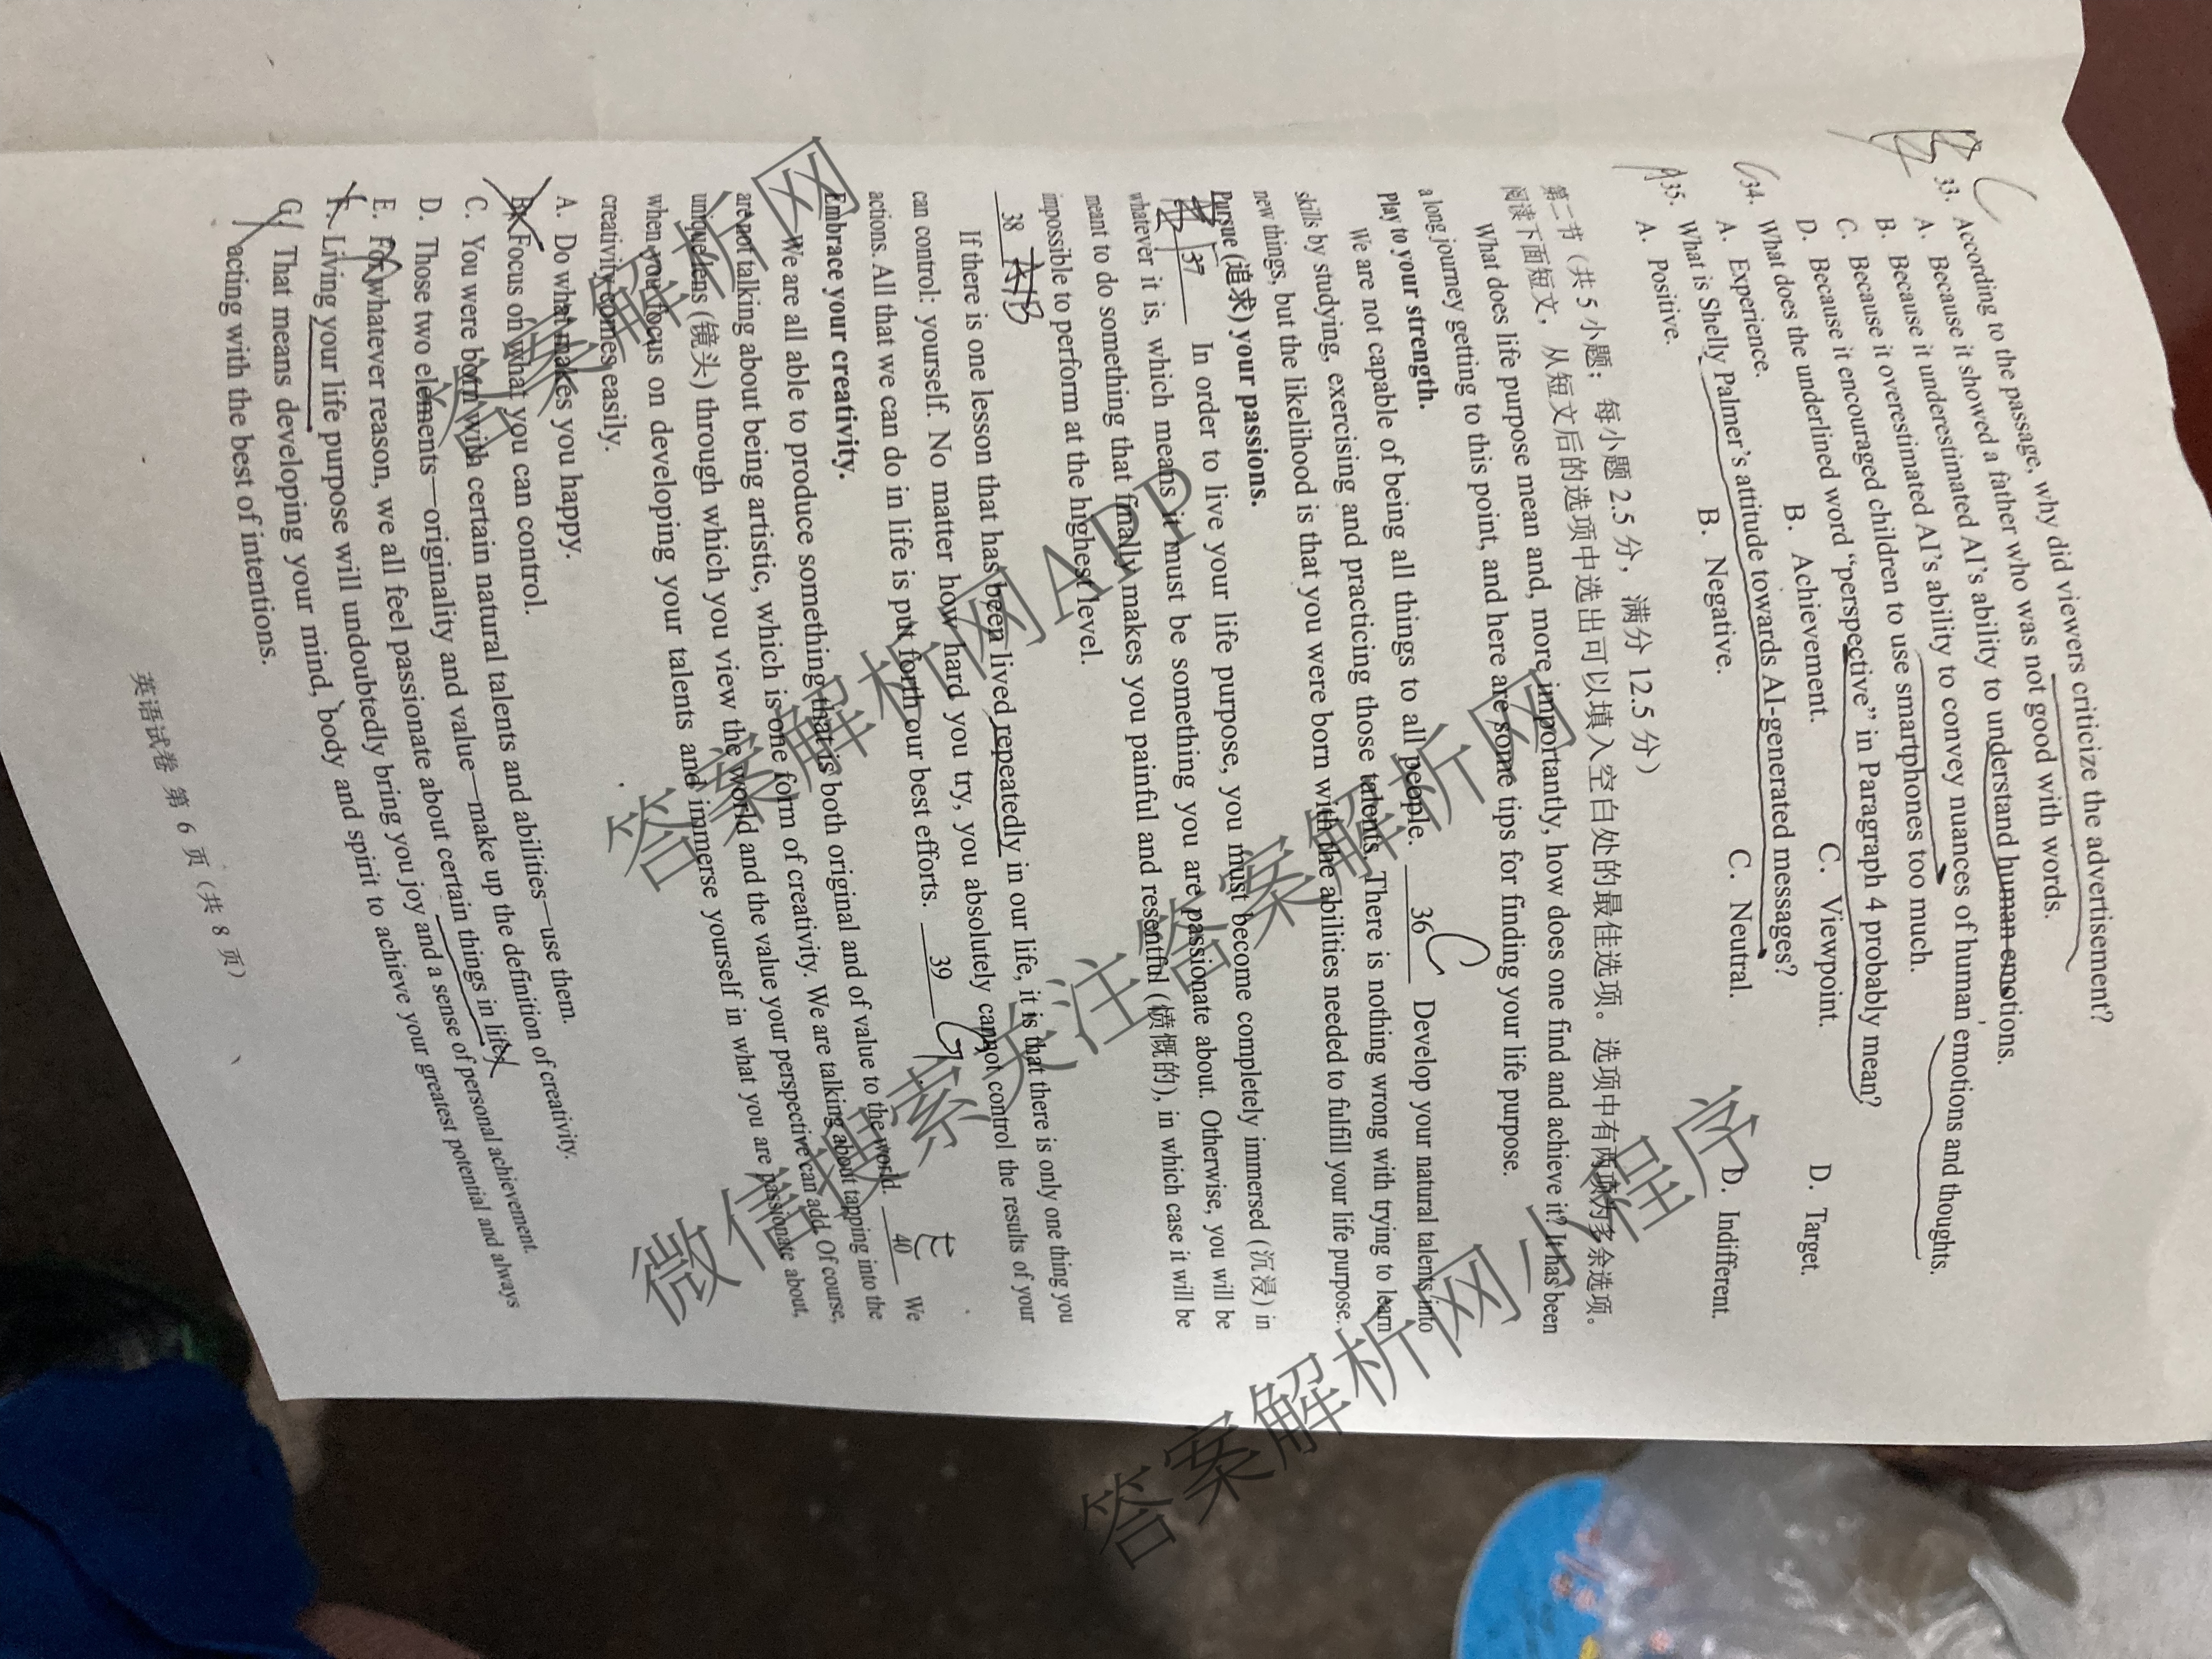 33. According to the passage, why did viewers criticize the advertisement?
A. Because it showed a father who was not good with words.
B. Because it underestimated AI's ability to understand human emotions.
C. Because it overestimated AI's ability to convey nuances of human emotions and thoughts.
D. Because it encouraged children to use smartphones too much.
34. What does the underlined word "perspective" in Paragraph 4 probably mean?
A. Experience. B. Achievement. C. Viewpoint. D. Target.
35. What is Shelly Palmer's attitude towards AI-generated messages?
A. Positive. B. Negative. C. Neutral. D. Indifferent.
第二节（共 5 小题；每小题 2.5 分，满分 12.5 分）
阅读下面短文，从短文后的选项中选出可以填入空白处的最佳选项。选项中有两项为多余选项。
What does life purpose mean and, more importantly, how does one find and achieve it? It has been
a long journey getting to this point, and here are some tips for finding your life purpose.
Play to your strength.
We are not capable of being all things to all people. 36 C Develop your natural talents into
skills by studying, exercising and practicing those talents. There is nothing wrong with trying to learn
new things, but the likelihood is that you were born with the abilities needed to fulfill your life purpose.
Pursue (追求) your passions.
37 In order to live your life purpose, you must become completely immersed (沉浸) in
whatever it is, which means it must be something you are passionate about. Otherwise, you will be
meant to do something that finally makes you painful and resentful (愤慨的), in which case it will be
impossible to perform at the highest level.
38 B
If there is one lesson that has been lived repeatedly in our life, it is that there is only one thing you
can control: yourself. No matter how hard you try, you absolutely cannot control the results of your
actions. All that we can do in life is put forth our best efforts. 39 G
Embrace your creativity.
We are all able to produce something that is both original and of value to the world. 40 E We
are not talking about being artistic, which is one form of creativity. We are talking about tapping into the
unique lens (镜头) through which you view the world and the value your perspective can add. Of course,
when you focus on developing your talents and immerse yourself in what you are passionate about,
creativity comes easily.
A. Do what makes you happy.
B. Focus on what you can control.
C. You were born with certain natural talents and abilities—use them.
D. Those two elements—originality and value—make up the definition of creativity.
E. For whatever reason, we all feel passionate about certain things in life.
F. Living your life purpose will undoubtedly bring you joy and a sense of personal achievement.
G. That means developing your mind, body and spirit to achieve your greatest potential and always
acting with the best of intentions.
英语试卷 第 6 页（共 8 页）
微信搜索关注答案解析网小程序
答案解析网APP
答案解析网